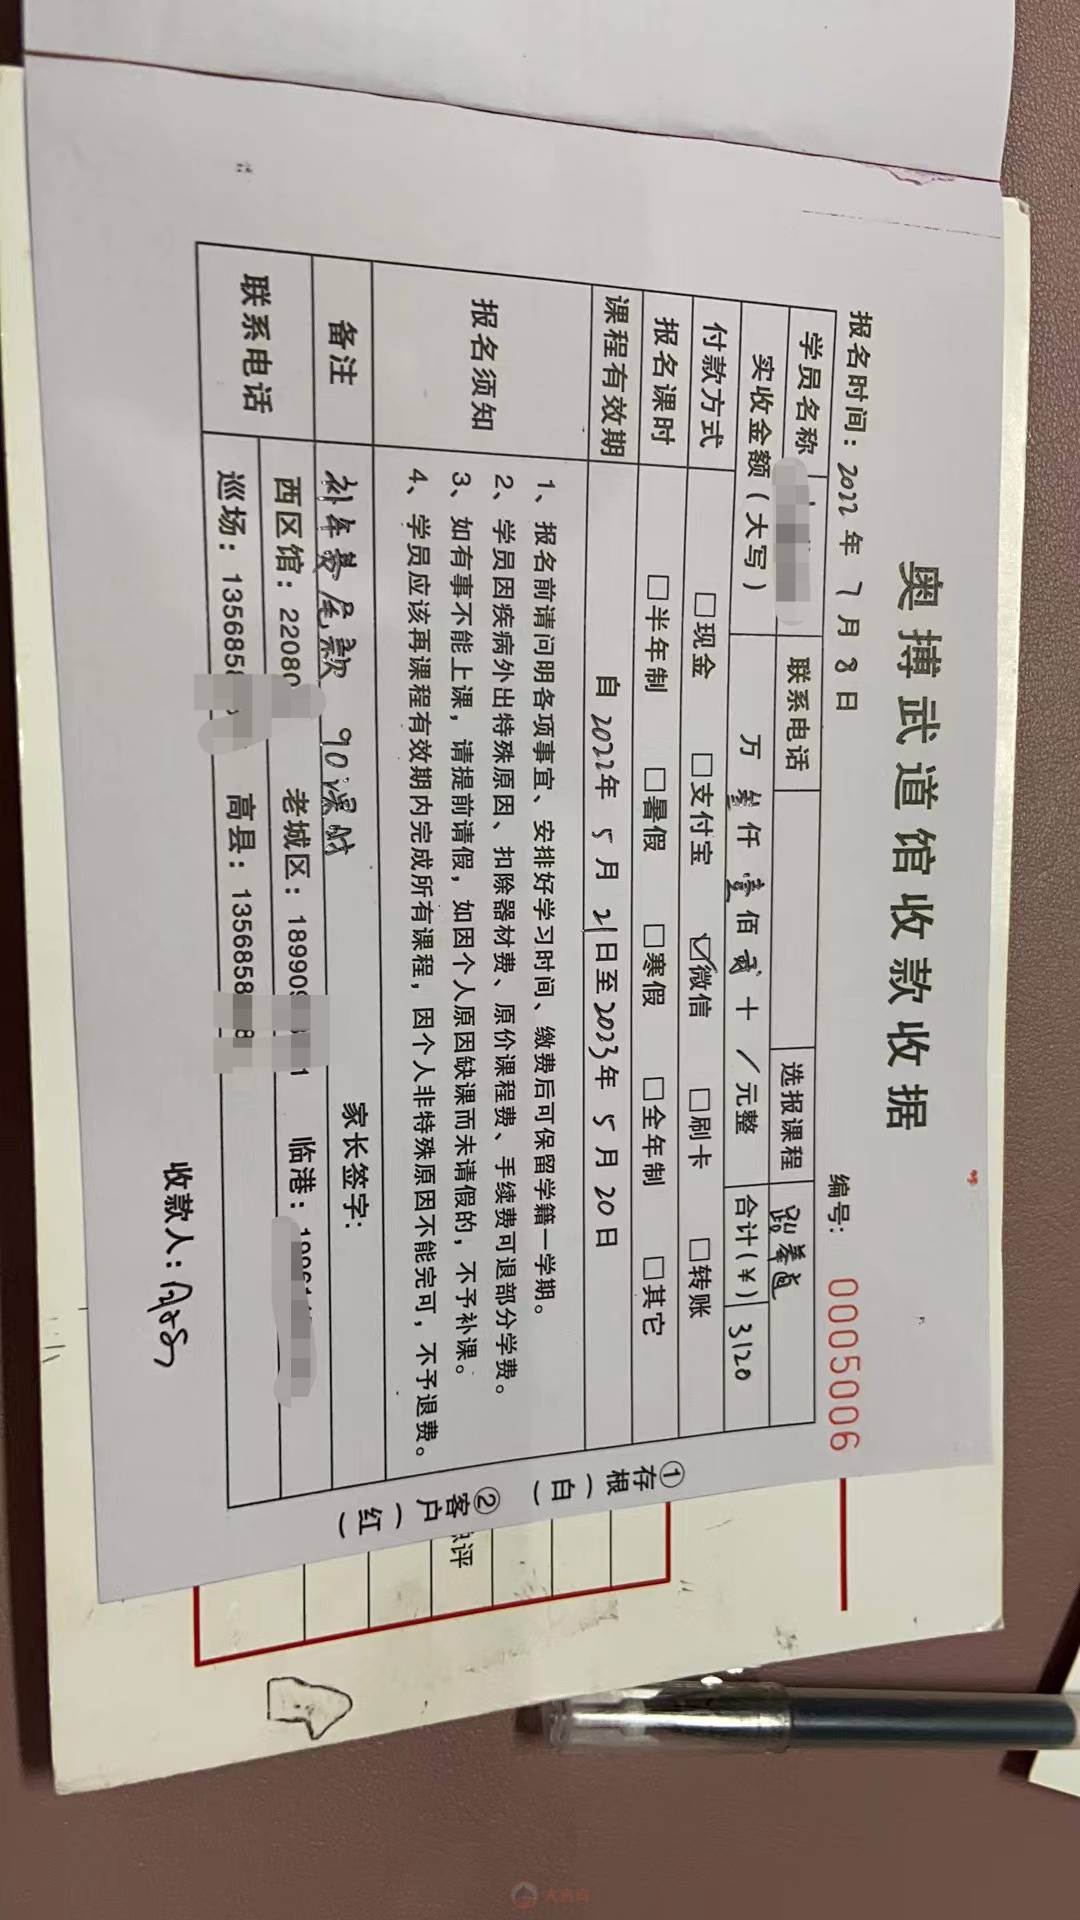 奥搏武道馆收款收据
报名时间：2022年7月8日 编号： 0005006
学员名称 联系电话 选报课程 跆拳道
实收金额（大写） 万 叁仟 壹佰 贰十 / 元整 合计(¥) 3120
付款方式 □现金 □支付宝 ☑微信 □刷卡 □转账
报名课时 □半年制 □暑假 □寒假 □全年制 □其它
课程有效期 自2022年5月21日至2023年5月20日
报名须知
1、报名前请问明各项事宜、安排好学习时间、缴费后可保留学籍一学期。
2、学员因疾病外出特殊原因、扣除器材费、原价课程费、手续费可退部分学费。
3、如有事不能上课，请提前请假，如因个人原因缺课而未请假的，不予补课。
4、学员应该再课程有效期内完成所有课程，因个人非特殊原因不能完可，不予退费。
备注 补年费尾款 90课时 家长签字：
联系电话
西区馆：22080 老城区：18990 临港：
巡场：135685 高县：1356858 8
收款人：
①存根（白）
②客户（红）
点评
大南向